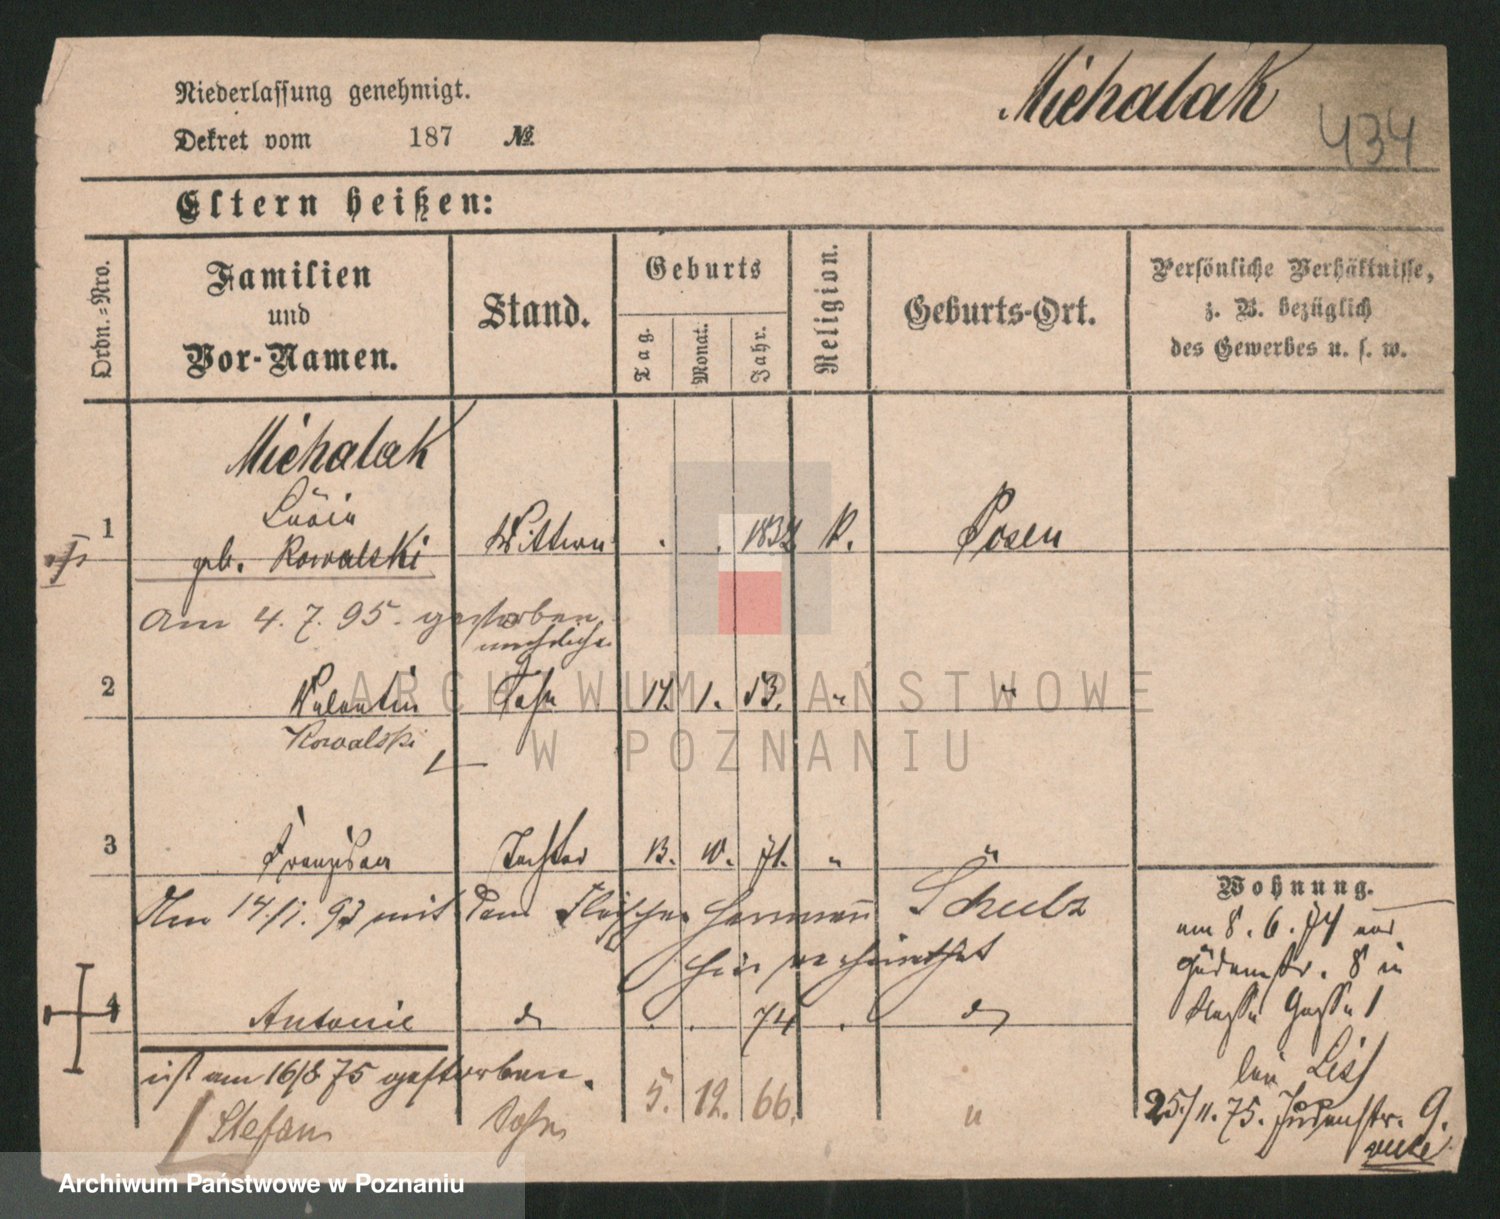 Niederlassung genehmigt.
Michalak
434
Dekret vom 187 №
Eltern heißen:
Ordn.-Nro.
Familien
und
Vor-Namen.
Stand.
Geburts
Tag.
Monat.
Jahr.
Religion.
Geburts-Ort.
Persönliche Verhältnisse,
z. B. bezüglich
des Gewerbes u. s. w.
Michalak
1 Wittwe 1832 K. Posen
geb. Kowalski
Am 4. 7. 95. gestorben.
unehelicher
2 Valentin Sohn 14. 1. 53. " "
Kowalski
3 Franziska Tochter 13. 10. 71. " "
Am 14/1. 93 mit dem Fleischer Hermann Schulz
hier verheirathet
4 Antonie d 74 . d
ist am 16/8 75 gestorben.
Stefan Sohn 5. 12. 66. "
Wohnung.
am 8. 6. 74 von
8 in
Gasse 1
bei
25/11. 75. Judenstr. 9.
ARCHIWUM PAŃSTWOWE
W POZNANIU
Archiwum Państwowe w Poznaniu